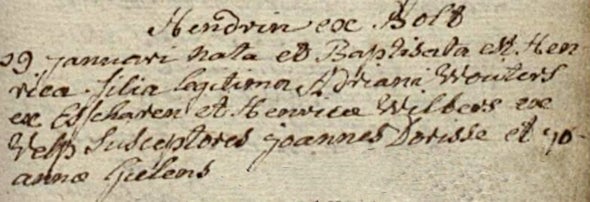 Hendrin ex Bolt
29 januari nata et Baptisata est Hen
rica filia legitima Adriani Wouters
ex Esscharen et Henricæ Wilbers ex
Velp Susceptores joannes Dorisse et jo-
annæ Gielens